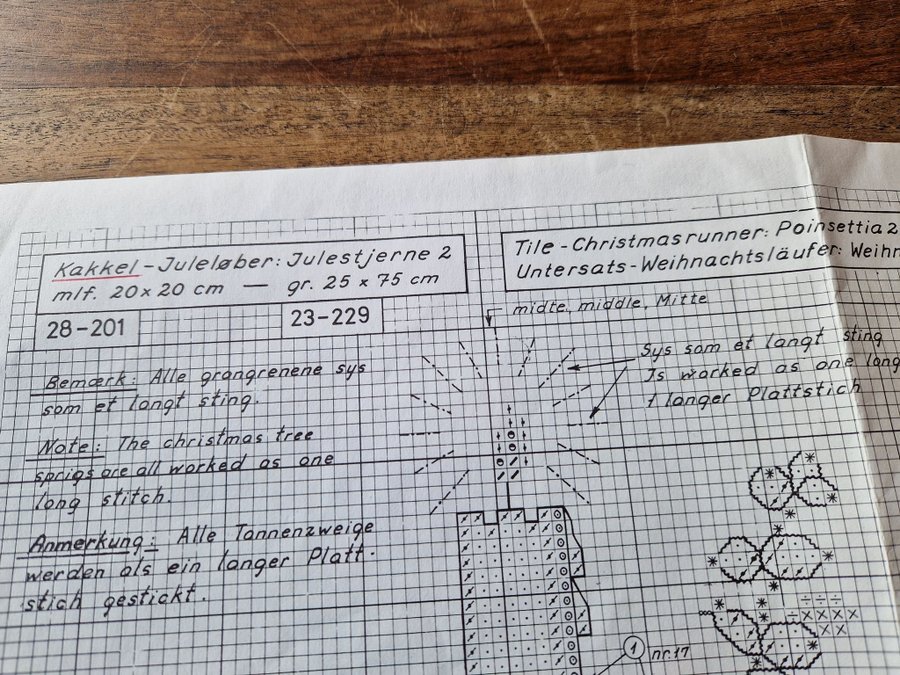 Kakkel-Juleløber: Julestjerne 2
mlf. 20x20 cm — gr. 25 x 75 cm
28-201
23-229
Tile-Christmasrunner: Poinsettia 2
Untersats-Weihnachtsläufer:
midte, middle, Mitte
Sys som et langt sting
Is worked as one long
1 langer Plattstich
Bemærk: Alle grangrenene sys
som et langt sting.
Note: The christmas tree
sprigs are all worked as one
long stitch.
Anmerkung: Alle Tannenzweige
werden als ein langer Platt-
stich gestickt.
1 nr.17